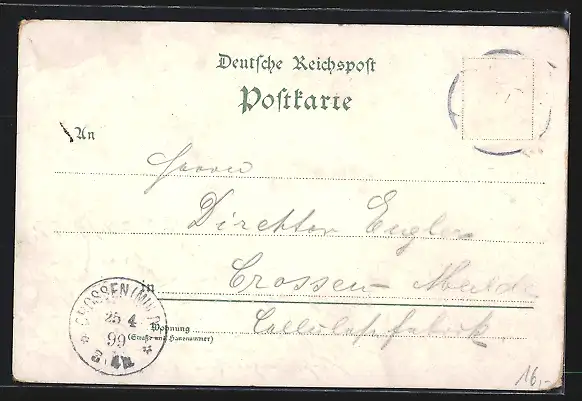 Deutsche Reichspost
Postkarte
An
Herrn
Direktor Engler
in Crossen Mulde
Wohnung
(Straße und Hausnummer)
Cellulosefabrik
CROSSEN (MULDE)
25 4
99
16,-